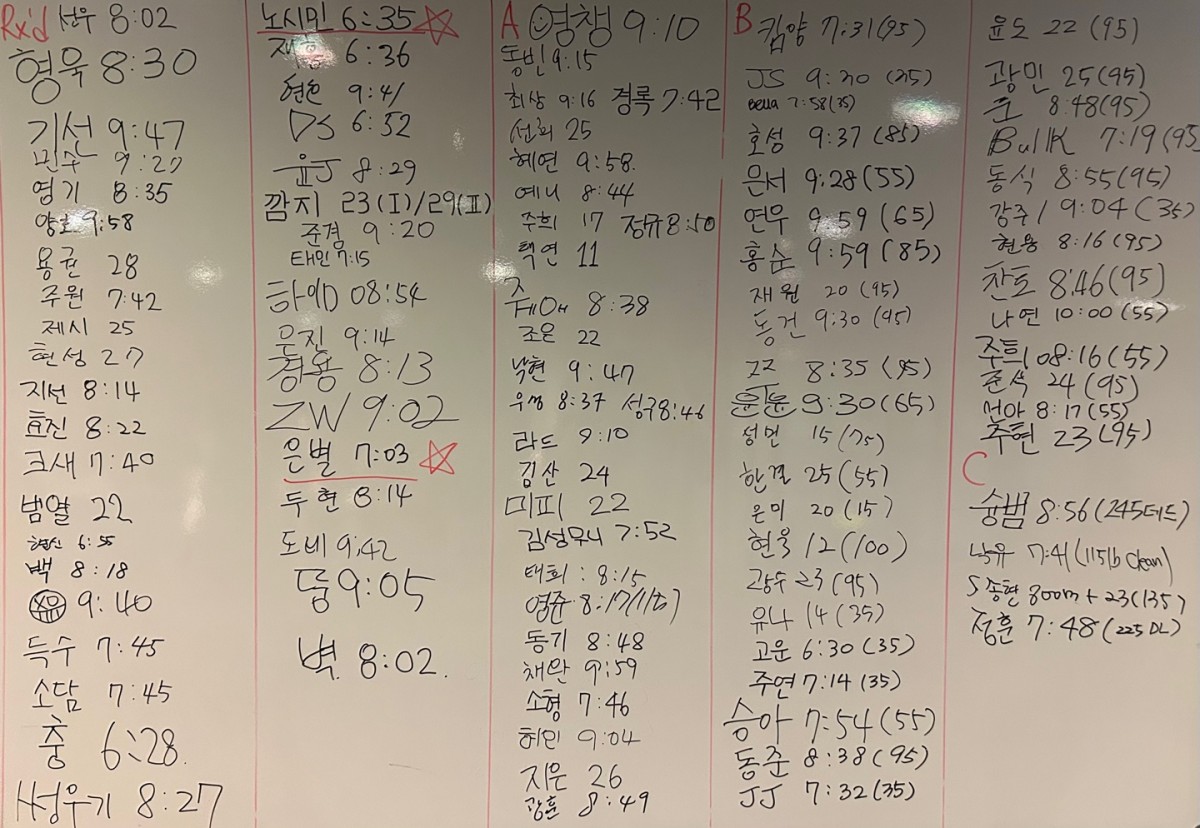 Rx'd 선우 8:02
형욱 8:30
기선 9:47
민수 9:27
영기 8:35
양호 9:58
용균 28
주원 7:42
제시 25
현성 27
지선 8:14
효진 8:22
크새 7:40
범열 22
6:55
백 8:18
9:40
득수 7:45
소담 7:45
충 6:28
써성우기 8:27
노시민 6:35
6:36
9:41
DS 6:52
윤J 8:29
깜지 23(I)/29(II)
준겸 9:20
태민 7:15
08:54
은진 9:14
경용 8:13
ZW 9:02
은별 7:03
두현 8:14
도비 9:42
둠 9:05
벽 8:02
A 영챙 9:10
동빈 9:15
최상 9:16 경록 7:42
선희 25
혜연 9:58
예니 8:44
주희 17 정규 8:50
택연 11
8:38
조은 22
낙현 9:47
8:37 성구 8:46
라드 9:10
김산 24
미피 22
김성우니 7:52
태희 : 8:15
영준 8:17
동기 8:48
채완 9:59
소형 7:46
허민 9:04
지은 26
광훈 8:49
B 킴양 7:31(95)
JS 9:20 (35)
Bella 7:58(35)
호성 9:37 (85)
은서 9:28 (55)
연우 9:59 (65)
홍순 9:59 (85)
재원 20 (95)
동건 9:30 (95)
ZZ 8:35 (95)
윤윤 9:30 (65)
성민 15 (75)
한결 25 (55)
은미 20 (15)
현욱 12 (100)
광수 23 (95)
유나 14 (35)
고운 6:30 (35)
주연 7:14 (35)
승아 7:54 (55)
동준 8:38 (95)
JJ 7:32 (35)
윤도 22 (95)
광민 25 (95)
준 8:48 (95)
BullK 7:19 (95)
동식 8:55 (95)
강주 9:04 (35)
현용 8:16 (95)
찬토 8:46 (95)
나연 10:00 (55)
주희 08:16 (55)
준석 24 (95)
선아 8:17 (55)
주현 23 (95)
C
슝범 8:56 (245데드)
낙유 7:41 (115lb clean)
S 종현 800m + 23 (135)
정훈 7:48 (225 DL)